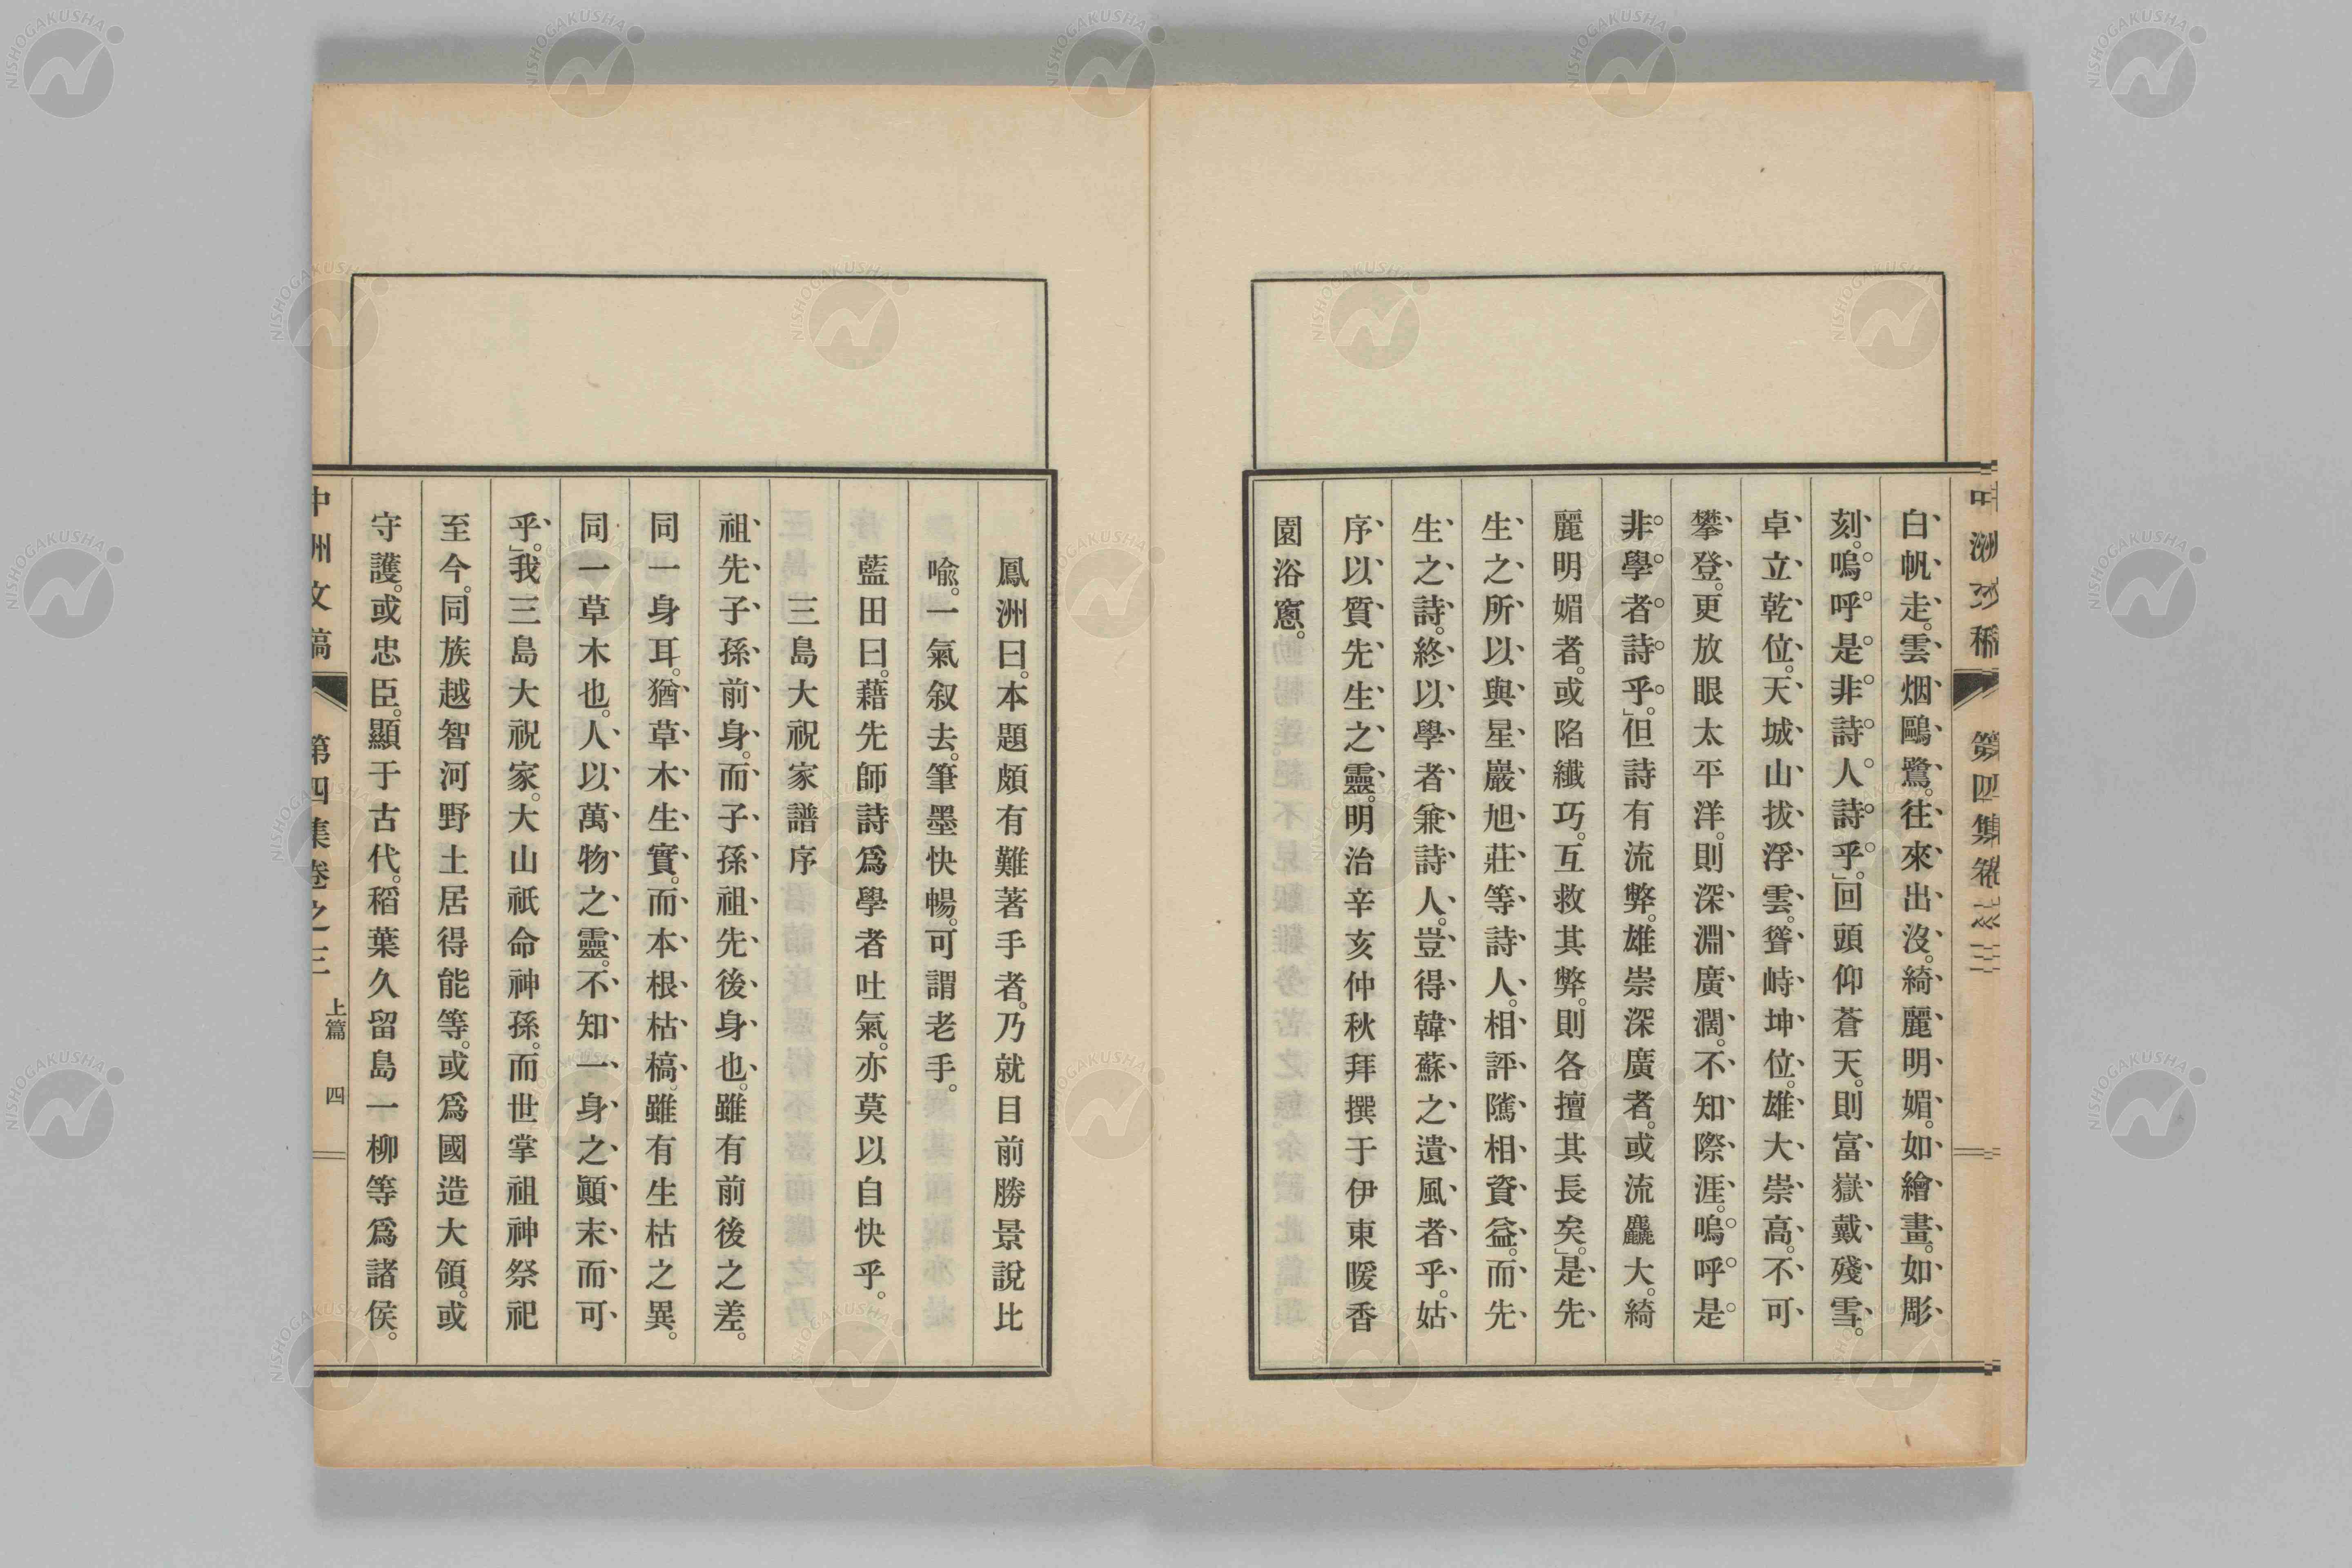 白帆走。雲烟鷗鷺。往來出沒。綺麗明媚。如繪畫。如彫
刻。嗚呼是非詩人詩乎。」回頭仰蒼天。則富嶽戴殘雪。
卓立乾位。天城山拔浮雲。聳峙坤位。雄大崇高。不可
攀登。更放眼太平洋。則深淵廣濶。不知際涯。嗚呼是
非學者詩乎。」但詩有流弊。雄崇深廣者。或流麤大。綺
麗明媚者。或陷纖巧。互救其弊。則各擅其長矣。」是先
生之所以與星巖旭莊等詩人。相評隲相資益。而先
生之詩。終以學者兼詩人。豈得韓蘇之遺風者乎。姑
序以質先生之靈。明治辛亥仲秋拜撰于伊東暖香
園浴窻。
鳳洲曰。本題頗有難著手者。乃就目前勝景說比
喩。一氣叙去。筆墨快暢。可謂老手。
藍田曰。藉先師詩爲學者吐氣。亦莫以自快乎。
三島大祝家譜序
祖先子孫前身。而子孫祖先後身也。雖有前後之差。
同一身耳。猶草木生實。而本根枯槁。雖有生枯之異。
同一草木也。人以萬物之靈。不知一身之顚末而可
乎。」我三島大祝家。大山祇命神孫。而世掌祖神祭祀
至今。同族越智河野土居得能等。或爲國造大領。或
守護。或忠臣。顯于古代。稻葉久留島一柳等爲諸侯。
中洲文稿 第四集卷之三 上篇 四